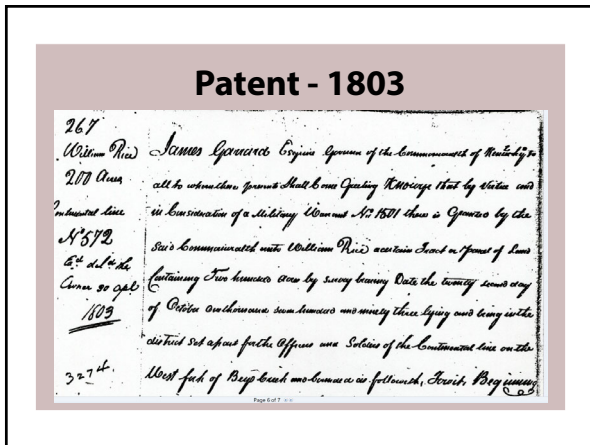 Patent - 1803
267
William Rice
200 Acres
Continental line
No 572
Ex'd del'd the
Owner 30 Apl
1803
327th
James Garrard Esquire Governor of the Commonwealth of Kentucky To
all to whom these presents Shall Come Greeting Know ye that by Virtue and
in Consideration of a Military Warrant No 1501 there is Granted by the
Said Commonwealth unto William Rice a certain Tract or Parcel of Land
Containing Two hundred Acres by survey bearing Date the twenty second day
of October one thousand seven hundred and ninety three lying and being in the
district Set apart for the Officers and Soldiers of the Continental line on the
West fork of Creek and bounded as followeth, Towit, Beginning
Page 6 of 7